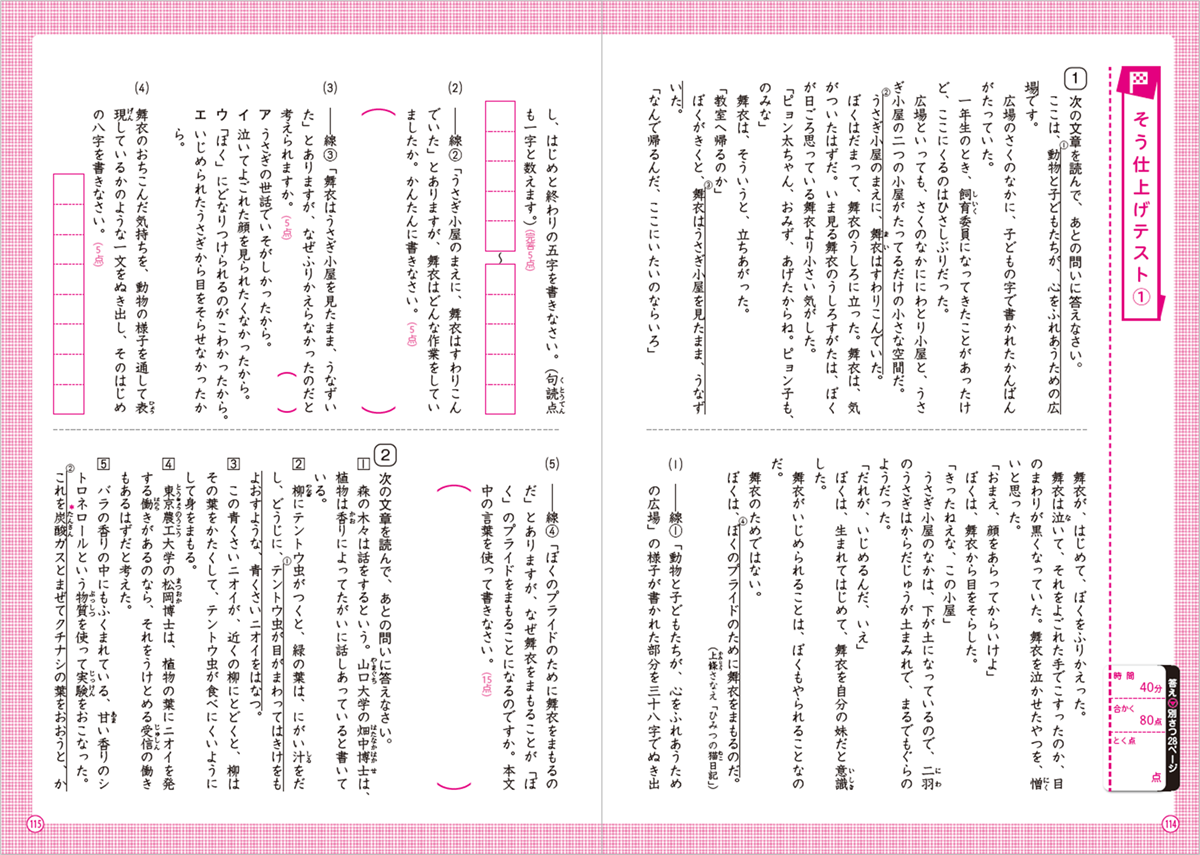 そう仕上げテスト①
時間 40分
合かく 80点
とく点 点
答え 別さつ28ページ
1 次の文章を読んで、あとの問いに答えなさい。
ここは、①動物と子どもたちが、心をふれあうための広
場です。
広場のさくのなかに、子どもの字で書かれたかんばん
がたっていた。
一年生のとき、飼育委員になってきたことがあったけ
ど、ここにくるのはひさしぶりだった。
広場といっても、さくのなかににわとり小屋と、うさ
ぎ小屋の二つの小屋がたってるだけの小さな空間だ。
②うさぎ小屋のまえに、舞衣はすわりこんでいた。
ぼくはだまって、舞衣のうしろに立った。舞衣は、気
がついたはずだ。いま見る舞衣のうしろすがたは、ぼく
が日ごろ思っている舞衣より小さい気がした。
「ピョン太ちゃん、おみず、あげたからね。ピョン子も、
のみな」
舞衣は、そういうと、立ちあがった。
「教室へ帰るのか」
ぼくがきくと、③舞衣はうさぎ小屋を見たまま、うなず
いた。
「なんで帰るんだ、ここにいたいのならいろ」
舞衣が、はじめて、ぼくをふりかえった。
舞衣は泣いて、それをよごれた手でこすったのか、目
のまわりが黒くなっていた。舞衣を泣かせたやつを、憎
いと思った。
「おまえ、顔をあらってからいけよ」
ぼくは、舞衣から目をそらした。
「きったねえな、この小屋」
うさぎ小屋のなかは、下が土になっているので、二羽
のうさぎはからだじゅうが土まみれで、まるでもぐらの
ようだった。
「だれが、いじめるんだ、いえ」
ぼくは、生まれてはじめて、舞衣を自分の妹だと意識
した。
舞衣がいじめられることは、ぼくもやられることなの
だ。
舞衣のためではない。
ぼくは、④ぼくのプライドのために舞衣をまもるのだ。
(上條さなえ「ひみつの猫日記」)
(1) ――線①「動物と子どもたちが、心をふれあうため
の広場」の様子が書かれた部分を三十八字でぬき出
し、はじめと終わりの五字を書きなさい。(句読点
も一字と数えます。)(完答5点)
〜
(2) ――線②「うさぎ小屋のまえに、舞衣はすわりこん
でいた」とありますが、舞衣はどんな作業をしてい
ましたか。かんたんに書きなさい。(5点)
(3) ――線③「舞衣はうさぎ小屋を見たまま、うなずい
た」とありますが、なぜふりかえらなかったのだと
考えられますか。(5点)
ア うさぎの世話でいそがしかったから。
イ 泣いてよごれた顔を見られたくなかったから。
ウ 「ぼく」にどなりつけられるのがこわかったから。
エ いじめられたうさぎから目をそらせなかったか
ら。
(4) 舞衣のおちこんだ気持ちを、動物の様子を通して表
現しているかのような一文をぬき出し、そのはじめ
の八字を書きなさい。(5点)
(5) ――線④「ぼくのプライドのために舞衣をまもるの
だ」とありますが、なぜ舞衣をまもることが「ぼ
く」のプライドをまもることになるのですか。本文
中の言葉を使って書きなさい。(15点)
2 次の文章を読んで、あとの問いに答えなさい。
1 森の木々は話をするという。山口大学の畑中博士は、
植物は香りによってたがいに話しあっていると書いて
いる。
2 柳にテントウ虫がつくと、緑の葉は、にがい汁をだ
し、どうじに、①テントウ虫が目がまわってはきけをも
よおすような、青くさいニオイをはなつ。
3 この青くさいニオイが、近くの柳にとどくと、柳は
その葉をかたくして、テントウ虫が食べにくいように
して身をまもる。
4 東京農工大学の松岡博士は、植物の葉にニオイを発
する働きがあるのなら、それをうけとめる受信の働き
もあるはずだと考えた。
5 バラの香りの中にもふくまれている、甘い香りのシ
トロネロールという物質を使って実験をおこなった。
②これを炭酸ガスとまぜてクチナシの葉をおおうと、か
114
115